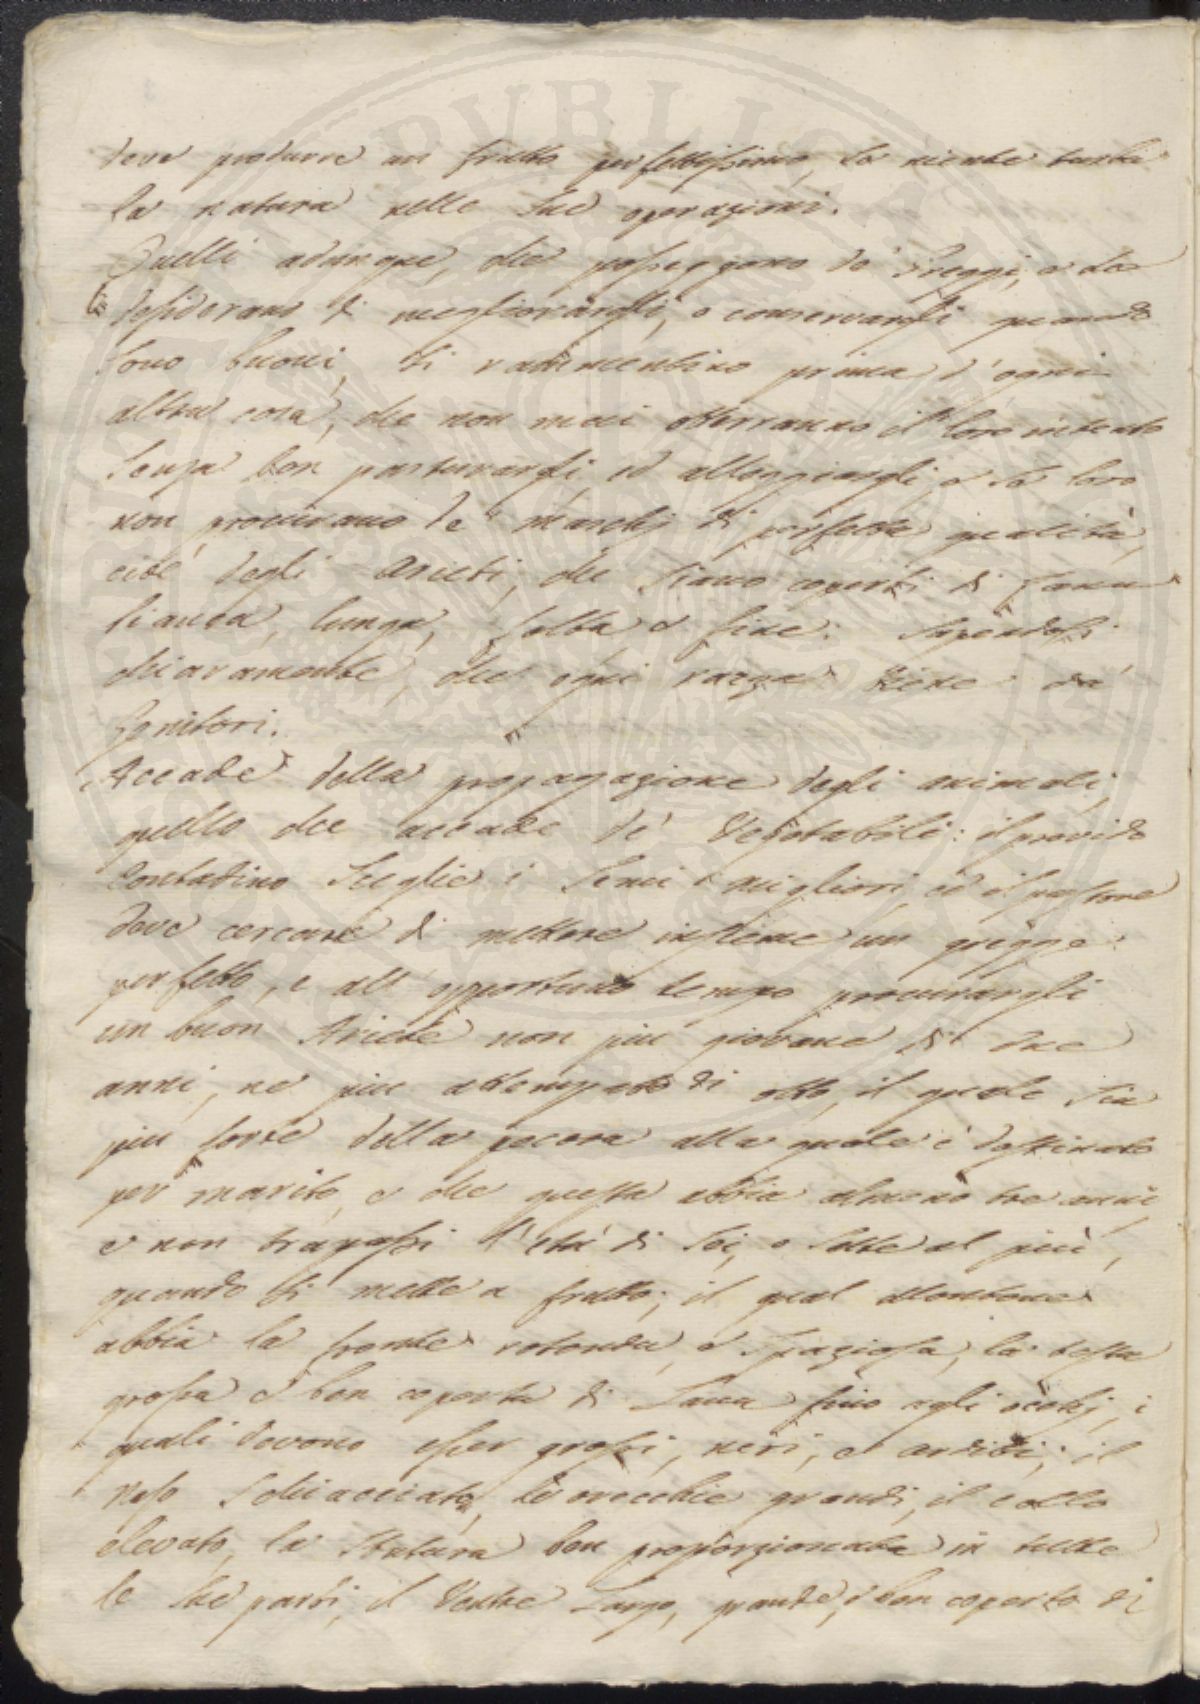 deve produrre un frutto perfettissimo, se niente turba
la natura nelle sue operazioni.
Quelli adunque, che posseggono de' Greggi, e che
desiderano di megliorargli, o conservargli quando
sono buoni, si rammentino prima d'ogni
altra cosa, che non mai otterranno il loro intento
senza ben pasturargli ed alloggiargli, e se loro
non procurano de' maschj di perfetta qualità,
cioè degli Arieti, che siano coperti di Lana
bianca, lunga, folta e fine: sapendosi
chiaramente, che ogni razza viene da'
Genitori.
Accade della propagazione degli animali,
quello che accade de' Vegetabili: il provido
Contadino sceglie i semi migliori, ed il pastore
deve cercare di mettere insieme un gregge
perfetto, e all'opportuno tempo procurargli
un buon Ariete non più giovane di due
anni, nè più attempato di otto, il quale sia
più forte della pecora alla quale è destinato
per marito, e che questa abbia almeno tre anni,
e non trapassi l'età di sei, o sette al più,
quando si mette a frutto; il qual Montone
abbia la fronte rotonda, e spaziosa, la testa
grossa e ben coperta di Lana fino agli occhj, i
quali devono esser grossi, neri, e arditi; il
naso schiacciato, le orecchie grandi, il collo
elevato, la statura ben proporzionata in tutte
le sue parti, il Ventre Largo, grande, e ben coperto di